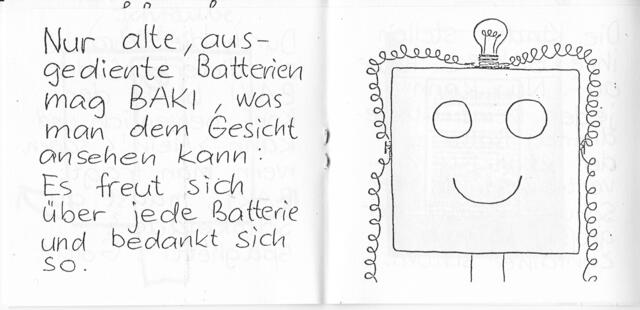 Nur alte, aus-
gediente Batterien
mag BAKI, was
man dem Gesicht
ansehen kann:
Es freut sich
über jede Batterie
und bedankt sich
so.